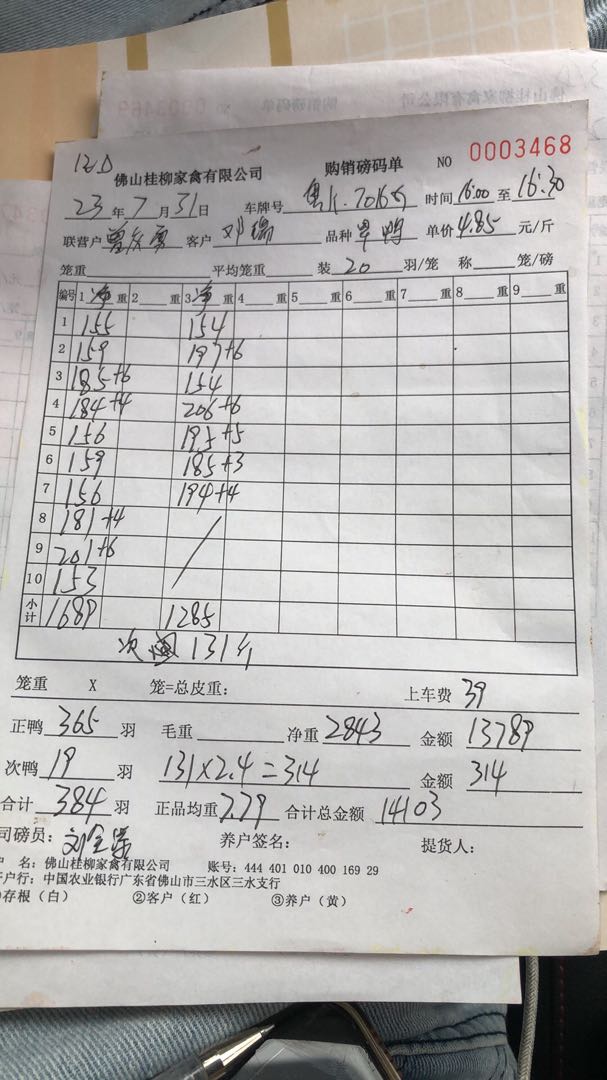 佛山桂柳家禽有限公司 购销磅码单 NO 0003468
23年7月31日 车牌号 时间16:00至16:30
联营户 客户 邓瑞 品种 单价4.85元/斤
笼重 平均笼重 装20羽/笼 称 笼/磅
编号 1净重 2 重 3净重 4 重 5 重 6 重 7 重 8 重 9 重
1 155 154
2 159 197+6
3 185+6 154
4 184+4 206+6
5 156 195+5
6 159 185+3
7 156 194+4
8 181+4
9 201+6
10 153
小计 1689 1285
次 131斤
笼重 X 笼=总皮重: 上车费 39
正鸭 365 羽 毛重 净重 2843 金额 13789
次鸭 19 羽 131×2.4=314 金额 314
合计 384 羽 正品均重 7.79 合计总金额 14103
司磅员: 养户签名: 提货人:
户 名: 佛山桂柳家禽有限公司 账号: 444 401 010 400 169 29
开户行: 中国农业银行广东省佛山市三水区三水支行
①存根(白) ②客户(红) ③养户(黄)